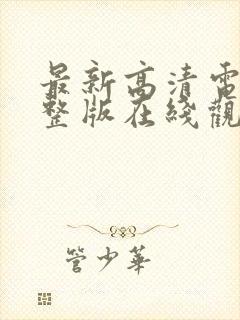 最新高清電
整版在綫觀
管少華